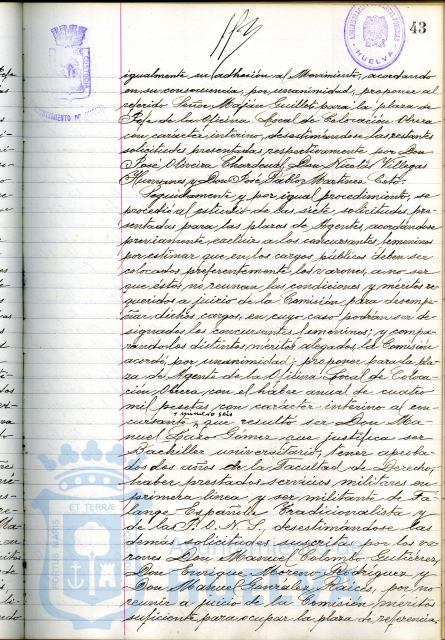 43
HUELVA
igualmente su adhesión al Movimiento, acordando
en su consecuencia, por unanimidad, proponer al
referido Señor Maján Guillot para la plaza de
Jefe de la Oficina Local de Colocación Obrera
con carácter interino, desestimándose las restantes
solicitudes presentadas respectivamente por Don
José Oliveira Chardenal, Don Nicolás Villegas
Humanes y Don José Pablo Martínez Coto.
Seguidamente y por igual procedimiento, se
procedió al estudio de las siete solicitudes pre-
sentadas para las plazas de Agentes, acordándose
previamente excluir a los concursantes femeninos
por estimar que en los cargos públicos deben ser
colocados preferentemente los varones, a no ser
que éstos no reunan las condiciones y méritos re-
queridos a juicio de la Comisión para desempe-
ñar dichos cargos, en cuyo caso podrían ser de-
signados los concursantes femeninos; y compa-
rando los distintos méritos alegados la Comisión
acordó, por unanimidad, proponer para la pla-
za de Agente de la Oficina Local de Coloca-
ción Obrera con el haber anual de cuatro
mil pesetas con carácter interino al con-
número seis
cursante que resultó ser Don Ma-
nuel Gómez que justifica ser
Bachiller universitario, tener aproba-
dos dos años de la Facultad de Derecho,
haber prestados servicios militares en
primera línea y ser militante de Fa-
lange Española Tradicionalista y
de las J.O.N.S., desestimándose las
demás solicitudes suscritas por los va-
rones Don Manuel Colomo Gutiérrez,
Don Enrique Moreno Rodríguez y
Don Manuel González Raices, por no
reunir a juicio de la Comisión, méritos
suficiente para ocupar la plaza de referencia
PORTUS MARIS ET TERRAE
Ayuntamiento de